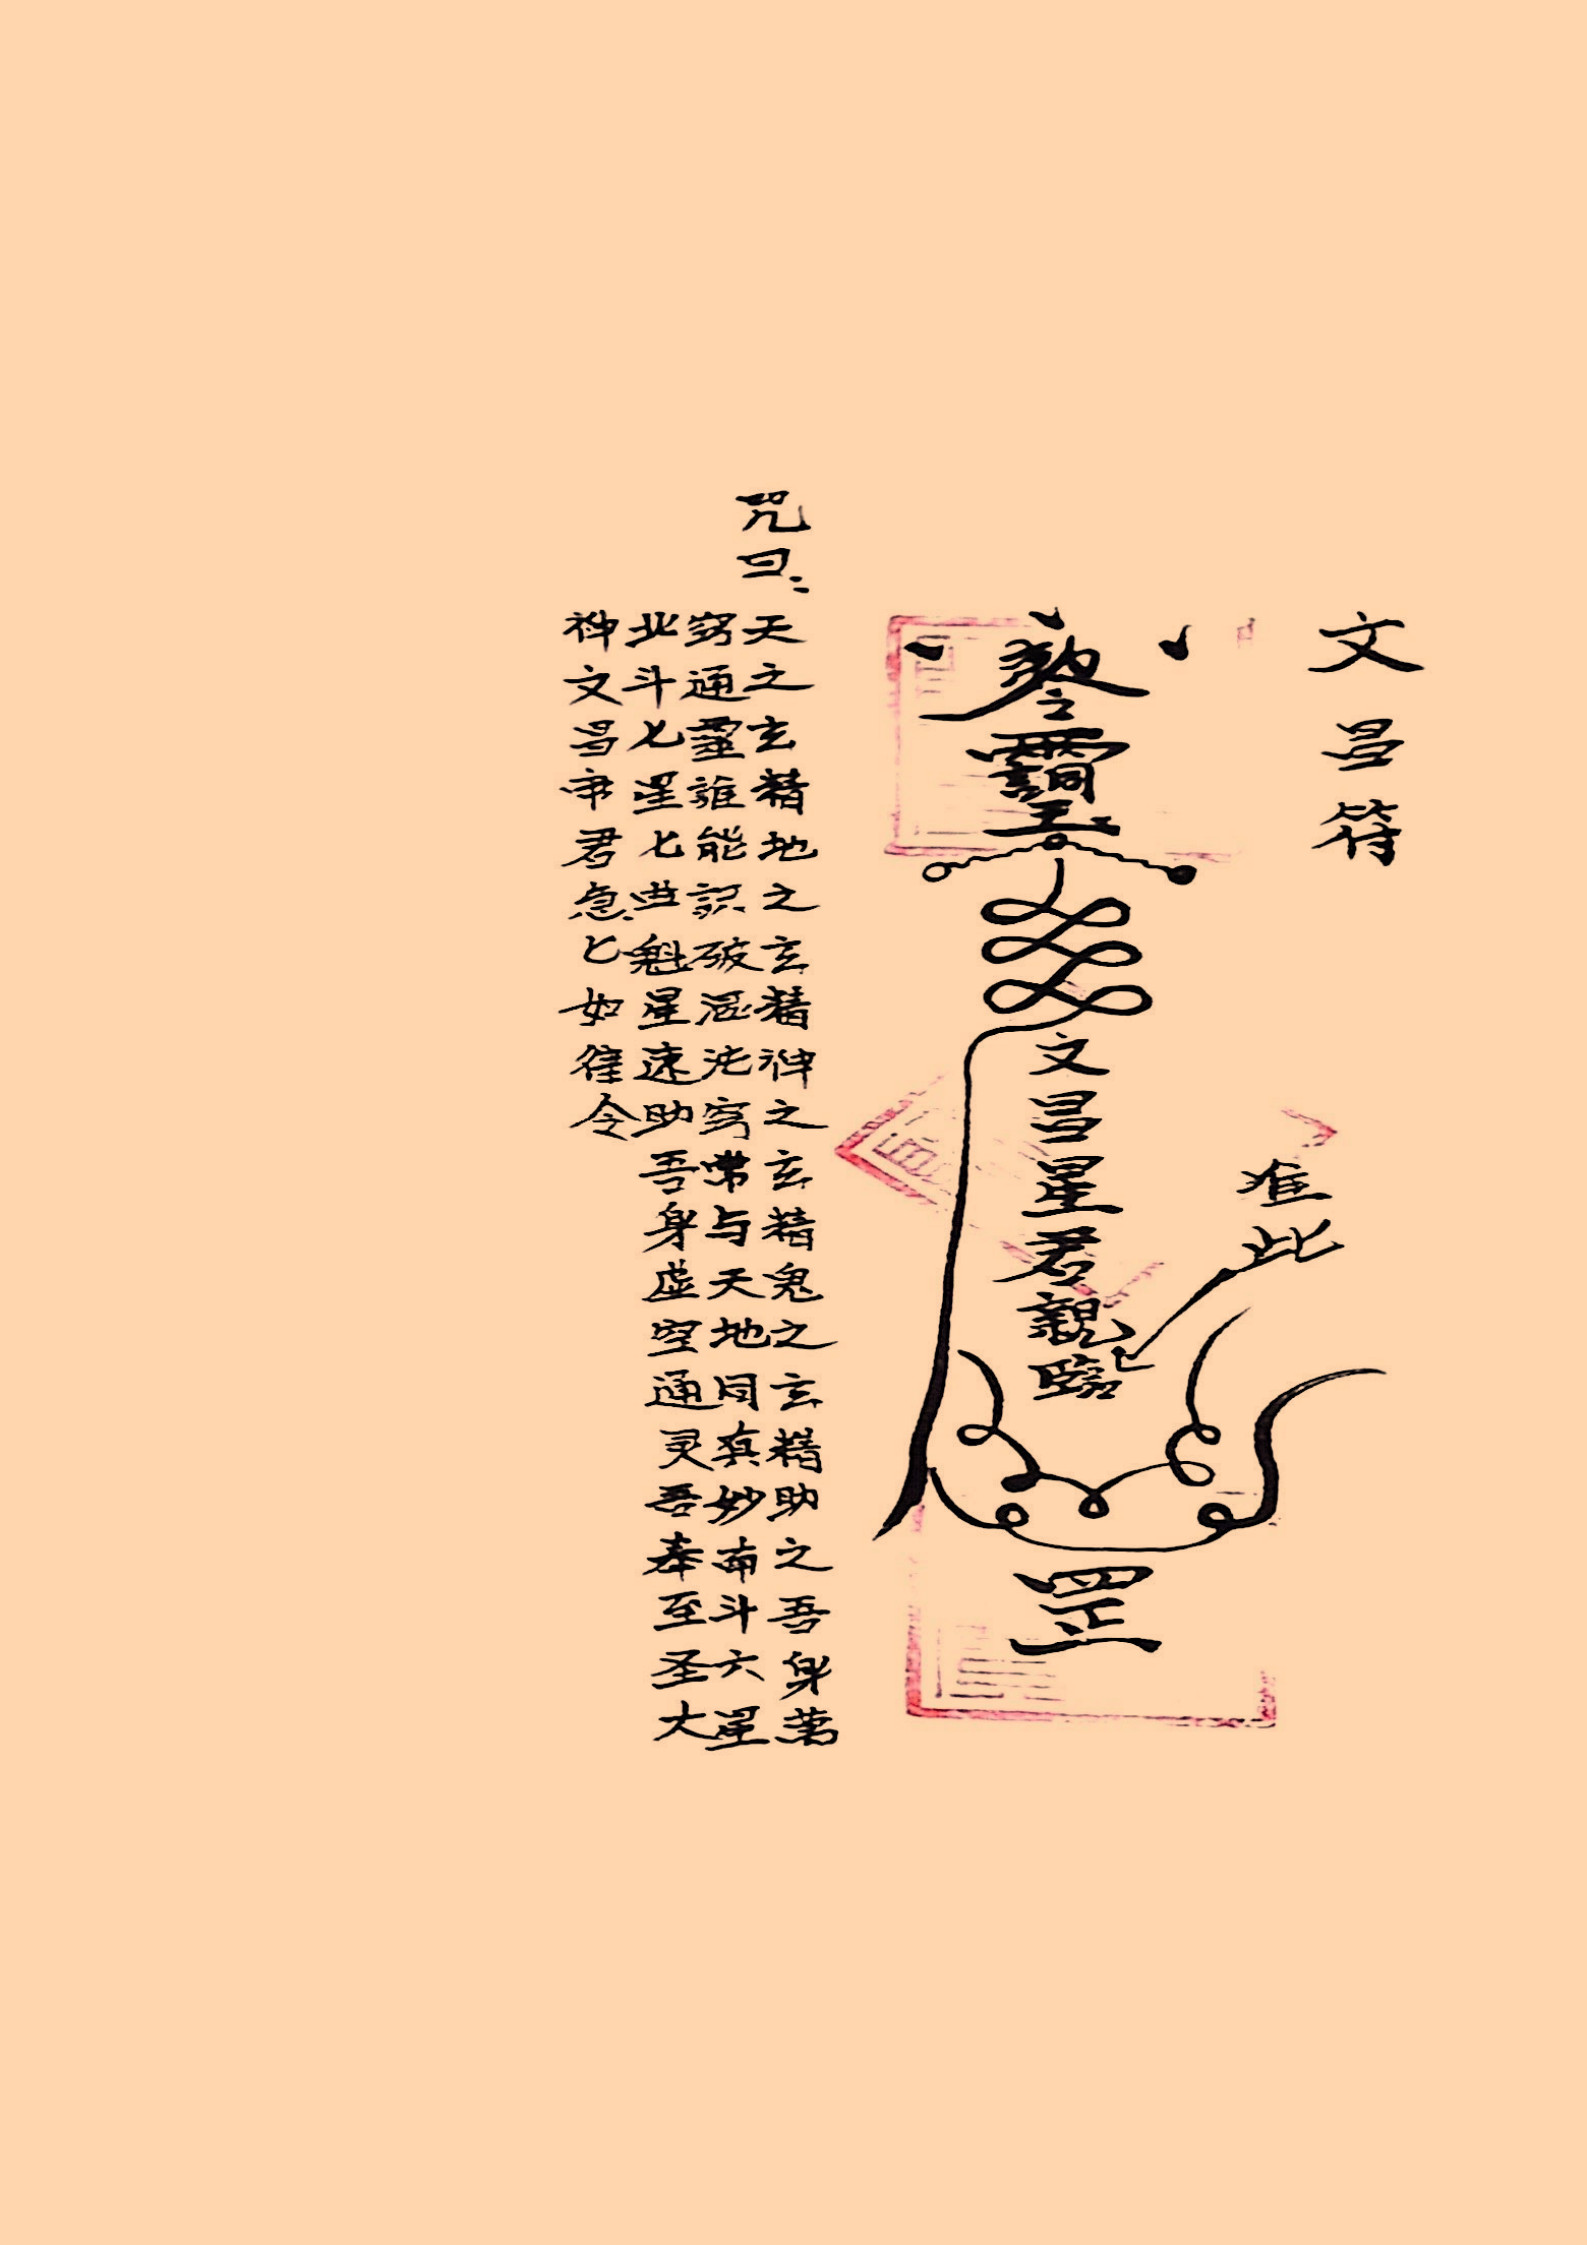 文昌符
敕令
文昌星君親臨
罡
准此
咒曰:
天之玄精地之玄精神之玄精鬼之玄精助之吾身萬
窍通靈誰能識破混沌窍带与天地同真妙南斗六星
北斗七星七曲魁星速助吾身虚空通灵吾奉至圣大
神文昌帝君急匕如律令